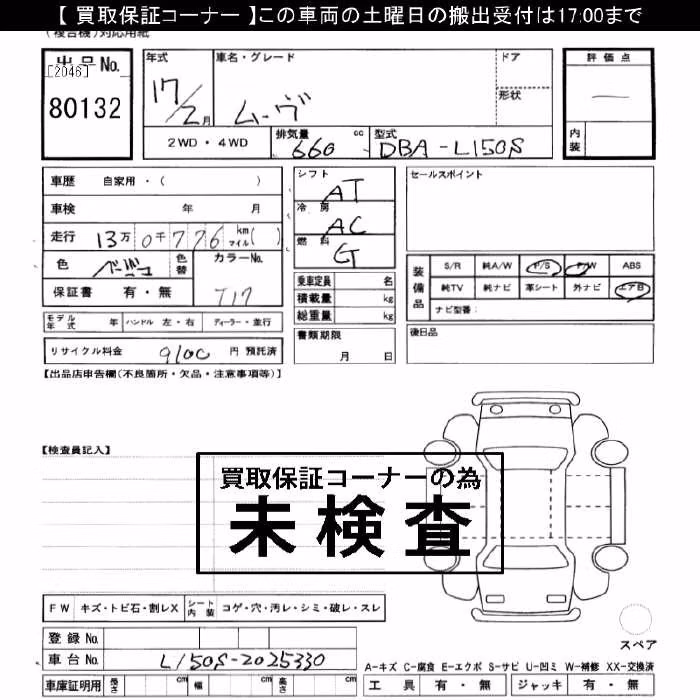 【 買取保証コーナー 】この車両の土曜日の搬出受付は17:00まで
(複合機)対応用紙
出品No.
[2046]
80132
年式
17/2月
車名・グレード
ムーヴ
ドア
形状
評価点
—
内装
2WD・4WD
排気量 660 cc
型式 DBA-L150S
車歴 自家用・( )
車検 年 月
走行 13万0千776 km マイル( )
色 ベージュ 色替
カラーNo. T17
保証書 有・無
モデル年式 年 ハンドル 左・右 ディーラー・並行
リサイクル料金 9100 円 預託済
シフト AT
冷房 AC
燃料 G
乗車定員 名
積載量 kg
総重量 kg
書類期限
月 日
セールスポイント
装備品
S/R 純A/W P/S P/W ABS
純TV 純ナビ 革シート 外ナビ エアB
ナビ型番:
後日品
【出品店申告欄(不良箇所・欠品・注意事項等)】
【検査員記入】
買取保証コーナーの為
未検査
FW キズ・トビ石・割レX シート内装 コゲ・穴・汚レ・シミ・破レ・スレ
登録No.
車台No. L150S-2025330
車庫証明用 長さ cm 幅 cm 高さ cm
スペア
A-キズ C-腐食 E-エクボ S-サビ U-凹ミ W-補修 XX-交換済
工具 有・無 ジャッキ 有・無